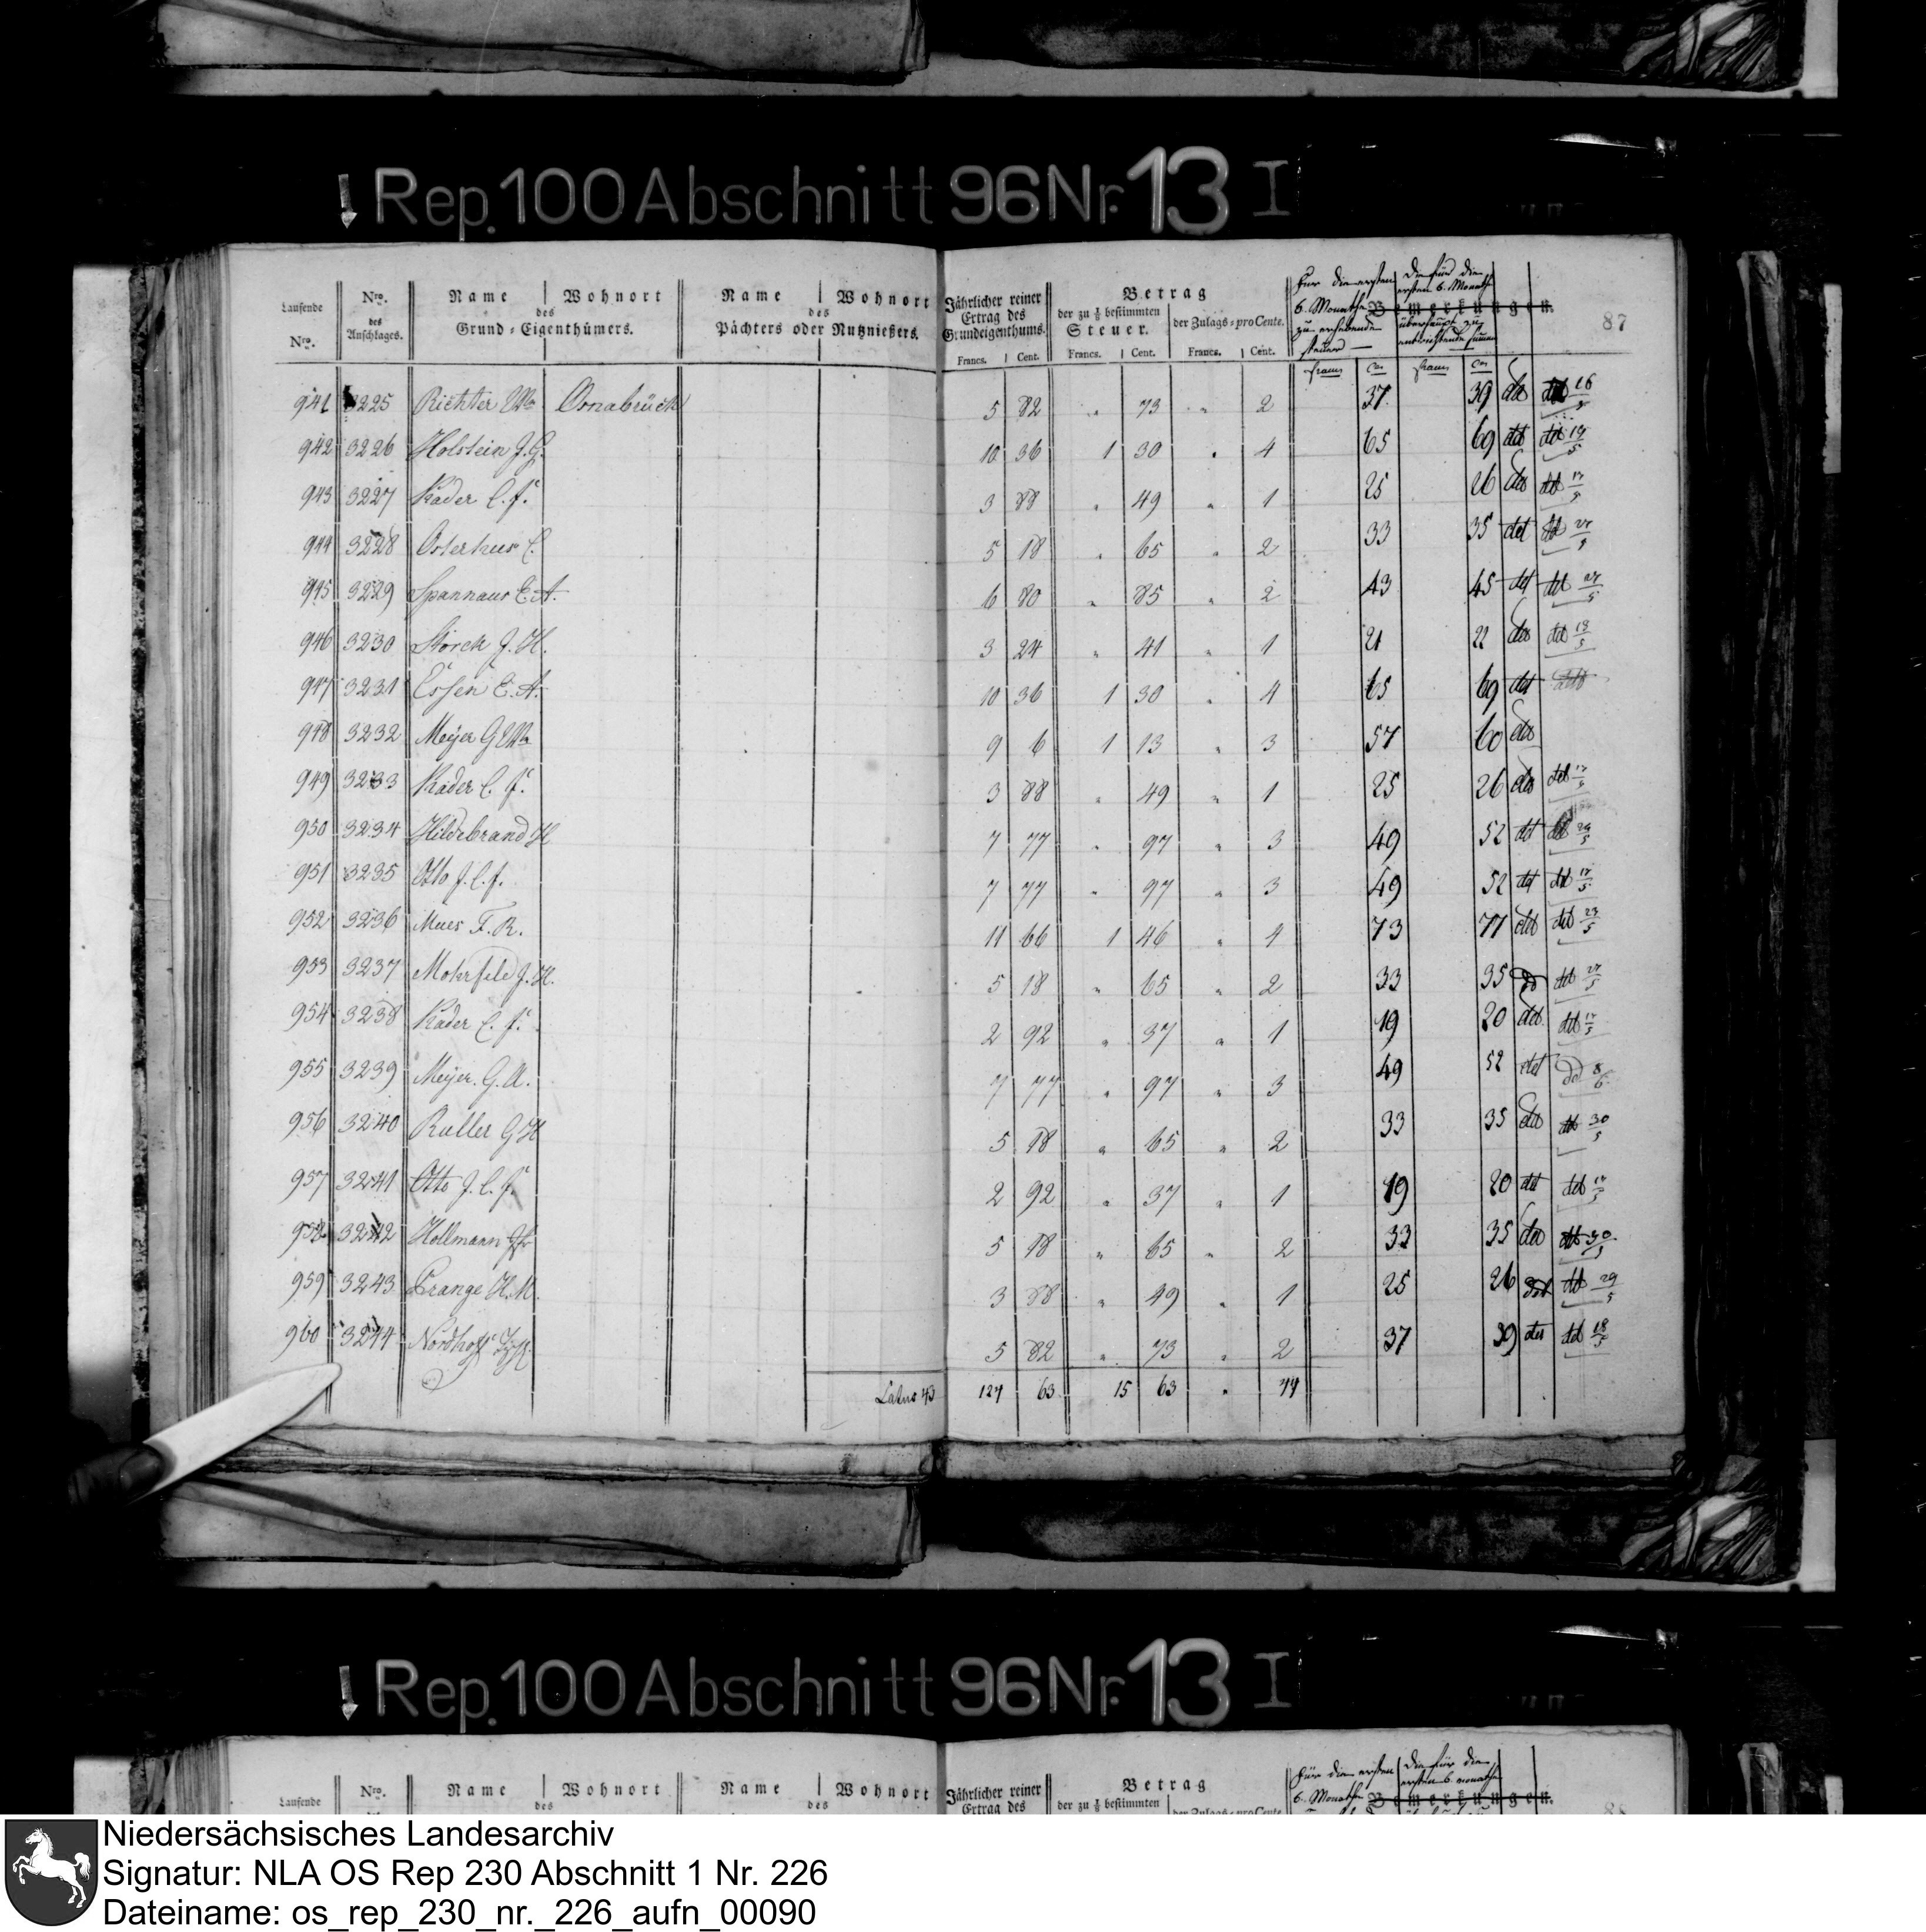 Rep. 100 Abschnitt 96 Nr. 13 I
87
Laufende Nro. | Nro. des Anschlages. | Name | Wohnort des Grund-Eigenthümers. | Name | Wohnort des Pächters oder Nutznießers. | Jährlicher reiner Ertrag des Grundeigenthums. | Betrag der zu 1/8 bestimmten Steuer. | der Zulags-proCente. | Für die ersten 6. Monathe zu erhebende Steuer | Die für die ersten 6. Monathe überhaupt zu entrichtende Summe | Bemerkungen.
Francs. | Cent. | Francs. | Cent. | Francs. | Cent. | Francs | Ces | Francs | Ces
941 3225 Richter Ww Osnabrück 5 82 " 73 " 2 37 39 det 16/5
942 3226 Holstein J. G. 10 36 1 30 " 4 65 69 det det 19/5
943 3227 Kader C. f. 3 88 " 49 " 1 25 26 det det 17/5
944 3228 Osterhus C. 5 18 " 65 " 2 33 35 det det 27/5
945 3229 Spannaus E. A. 6 80 " 85 " 2 43 45 det det 27/5
946 3230 Storck J. H. 3 24 " 41 " 1 21 22 det det 18/5
947 3231 Essen E. A. 10 36 1 30 " 4 65 69 det det
948 3232 Meyer G Ww 9 6 1 13 " 3 57 60 det
949 3233 Kader C. f. 3 88 " 49 " 1 25 26 det det 17/5
950 3234 Hildebrand H 7 77 " 97 " 3 49 52 det det 29/5
951 3235 Otto J. C. f. 7 77 " 97 " 3 49 52 det det 17/5
952 3236 Mues F. R. 11 66 1 46 " 4 73 77 det det 23/5
953 3237 Mohrfeld J. H. 5 18 " 65 " 2 33 35 det 27/5
954 3238 Kader C. f. 2 92 " 37 " 1 19 20 det det 17/5
955 3239 Meyer. G. A. 7 77 " 97 " 3 49 52 det 8/6
956 3240 Ruller G H 5 18 " 65 " 2 33 35 det det 30/5
957 3241 Otto J. C. f. 2 92 " 37 " 1 19 20 det det 17/5
958 3242 Hollmann 5 18 " 65 " 2 33 35 det det 30/5
959 3243 Prange H. M. 3 88 " 49 " 1 25 26 det det 29/5
960 3244 Nordhoff 5 82 " 73 " 2 37 39 det det 18/5
Latus 43 127 63 15 63 " 44
Rep. 100 Abschnitt 96 Nr. 13 I
88
Laufende | Nro. | Name | Wohnort des | Name | Wohnort des | Jährlicher reiner Ertrag des | Betrag der zu 1/8 bestimmten | der Zulags-proCente | Für die ersten 6. Monathe | Die für die ersten 6. Monathe | Bemerkungen.
Niedersächsisches Landesarchiv
Signatur: NLA OS Rep 230 Abschnitt 1 Nr. 226
Dateiname: os_rep_230_nr._226_aufn_00090